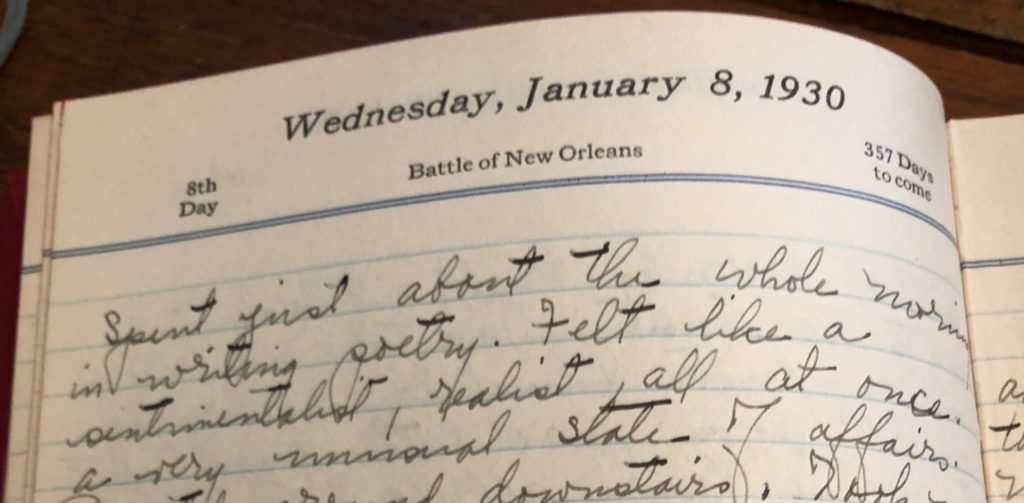 Wednesday, January 8, 1930
8th
Day
Battle of New Orleans
357 Days
to come
Spent just about the whole
in writing poetry. Felt like a
sentimentalist, realist, all at once.
a very unusual state of affairs.
downstairs).